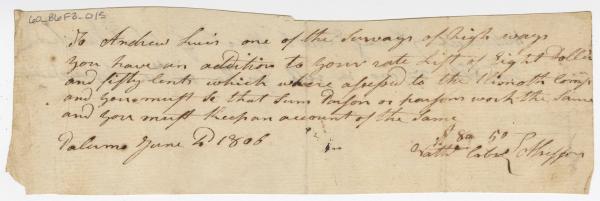 60_B6F3_015
To Andrew Luis one of the Survays of high ways
you have an addition to your rate List of Eight Dollars
and fifty Cents which where assessed to the Plimoth Comp
and you must se that sum Parson or parsons work the Same
and you must keep an account of the Same
$ 8D 50
Palermo June D 1806